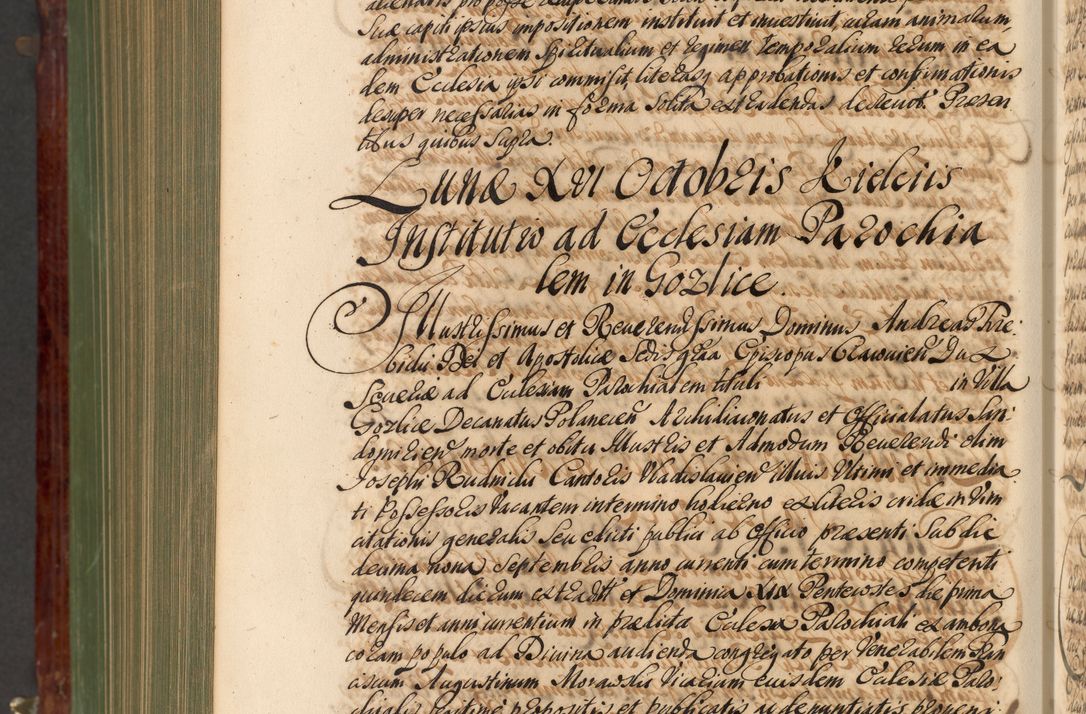 suæ capiti ipsius impositionem instituit et investivit, curam animarum,
administrationem spiritualium et regimen temporalium rerum in ea
dem Ecclesia ipsi commisit, literasq approbationis et confirmationis
desuper necessarias in forma solita extradendas decrevit. Præsen
tibus quibus supra.
Lunæ XVI Octobris Kielciis
Institutio ad Ecclesiam Parochia
lem in Gozlice.
Illustrissimus et Reverendissimus Dominus Andreas Tre
bicki Dei et Apostolicæ Sedis graa Episcopus Cracovien Dux
Severiæ ad Ecclesiam Parochialem tituli in Villa
Gozlice Decanatus Polanecen Archidiaconatus et Officialatus San
domirien morte et obitu Illustris et Admodum Reverendi olim
Josephi Rudnicki Cantoris Vladislavien illius Ultimi et immedia
ti Possessoris vacantem in termino hodierno ex literis cridæ in vim
citationis generalis seu edicti publici ab Officio præsenti sub die
decima nona Septembris anno currenti cum termino competenti
quindecem dierum extradtt et Dominica XIX Pentecostes die prima
Mensis et anni currentium in prædicta Ecclesia Parochiali ex ambona
coram populo ad Divina audienda congregato per Venerabilem Fran
ciscum Augustinum Morawski Vicarium eiusdem Ecclesiæ Paro
chialis legitime propositis et publicatis ac denuntiatis proveni